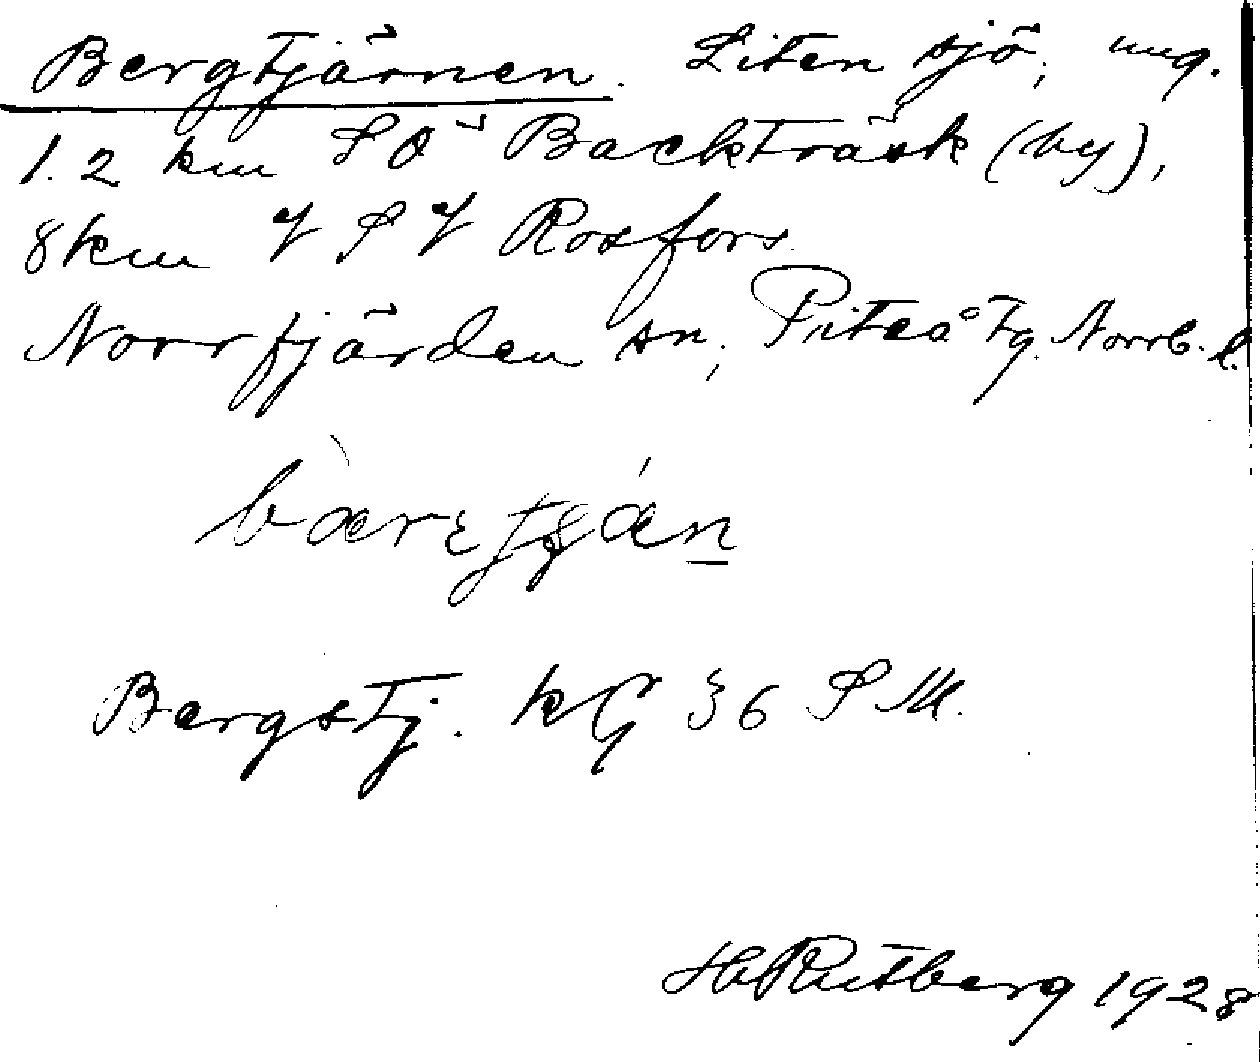 Bergtjärnen. Liten sjö, ung.
1.2 km SÖ Backträsk (by),
8 km V S V Rosfors.
Norrfjärden sn, Piteå tg. Norrb. l.
Bergstj. kG 36 S M.
H. Rutberg 1928